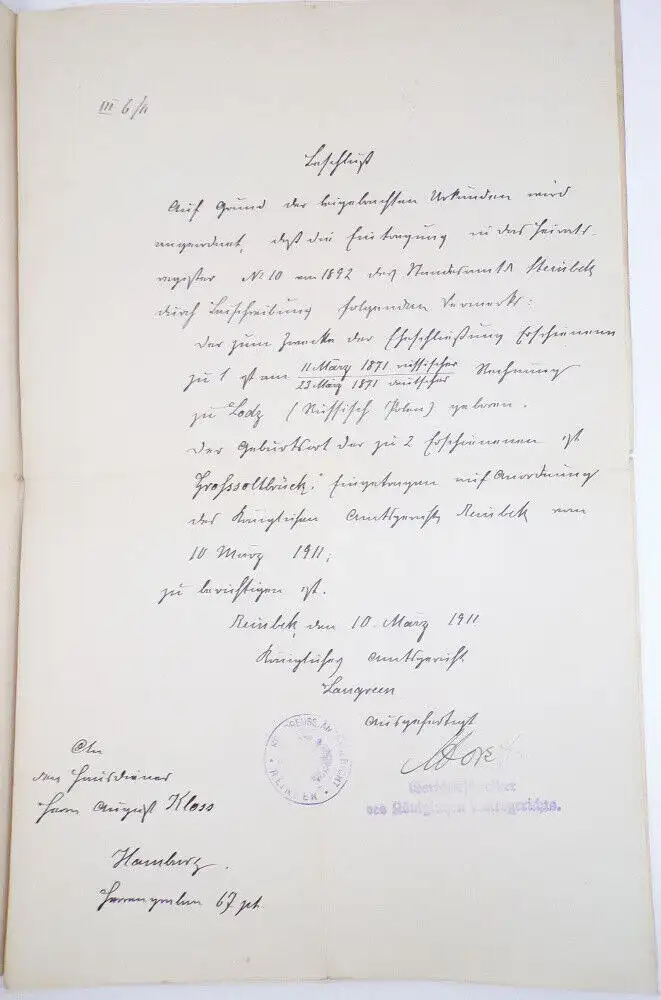 III 6/11
Beschluß
Auf Grund der beigebrachten Urkunden wird
angeordnet, daß die Eintragung in das Heirats-
register No 10 von 1892 des Standesamts Steinbek
durch Beischreibung folgenden Vermerks:
Der zum Zwecke der Eheschließung Erschienene
zu 1 ist am 11 März 1871 russischer
23 März 1871 deutscher Rechnung
zu Lodz (Russisch Polen) geboren.
Der Geburtsort der zu 2 Erschienenen ist
Grosssoltbrück." Eingetragen auf Anordnung
des Königlichen Amtsgerichts Reinbek vom
10 März 1911;
zu berichtigen ist.
Reinbek, den 10. März 1911
Königliches Amtsgericht
Ausgefertigt
REINBEK
Gerichtsschreiber
des Königlichen Amtsgerichts.
An
den Hausdiener
Herrn August Kloss
Hamburg.
Herrengraben 67 pt.